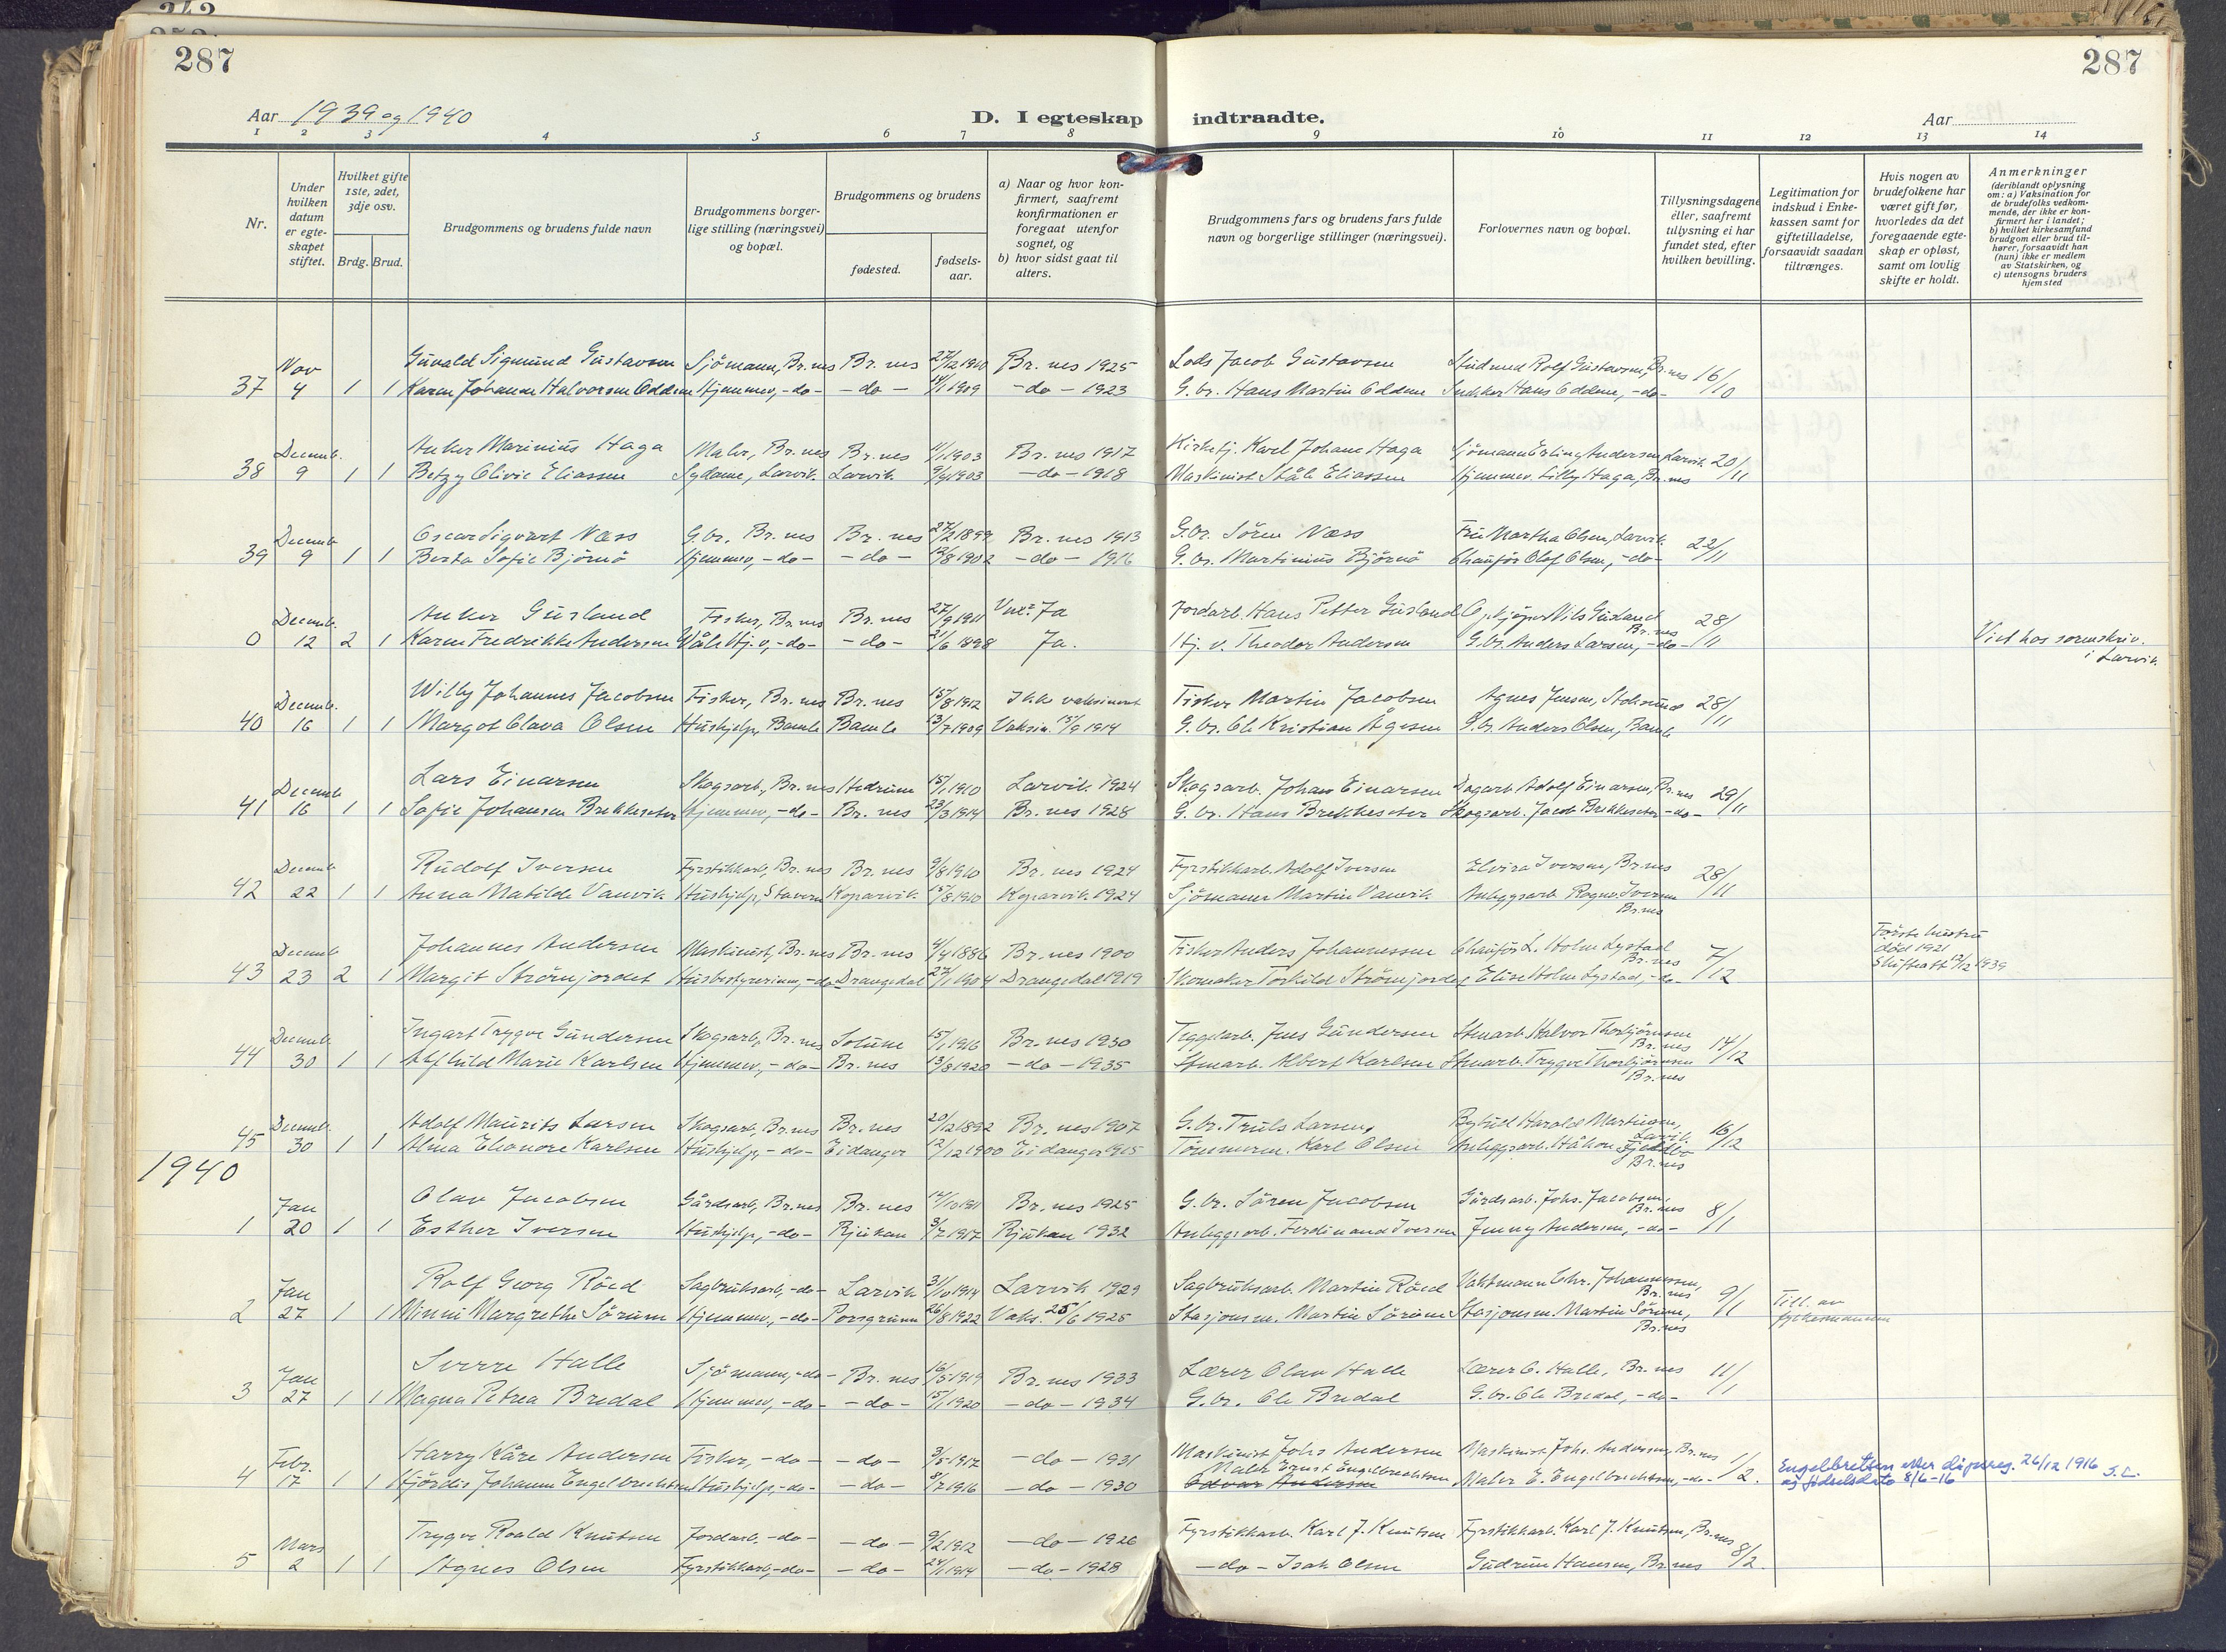 287
287
Aar 1939 og 1940
D. I egteskap indtraadte.
Aar
1 2 3 4 5 6 7 8 9 10 11 12 13 14
Nr.
Under hvilken datum er egteskapet stiftet.
Hvilket gifte 1ste, 2det, 3dje osv.
Brdg. Brud.
Brudgommens og brudens fulde navn
Brudgommens borgerlige stilling (næringsvei) og bopæl.
Brudgommens og brudens
fødested.
fødselsaar.
a) Naar og hvor konfirmert, saafremt konfirmationen er foregaat utenfor sognet, og
b) hvor sidst gaat til alters.
Brudgommens fars og brudens fars fulde navn og borgerlige stillinger (næringsvei).
Forlovernes navn og bopæl.
Tillysningsdagene eller, saafremt tillysning ei har fundet sted, efter hvilken bevilling.
Legitimation for indskud i Enkekassen samt for giftetilladelse, forsaavidt saadan tiltrænges.
Hvis nogen av brudefolkene har været gift før, hvorledes da det foregaaende egteskap er opløst, samt om lovlig skifte er holdt.
Anmerkninger
(deriblandt oplysning om: a) Vaksination for de brudefolks vedkommende, der ikke er konfirmert her i landet; b) hvilket kirkesamfund brudgom eller brud tilhører, forsaavidt han (hun) ikke er medlem av Statskirken, og c) utensogns bruders hjemsted
Nov Gunvald Sigmund Gustavsen Sjömann, Br.nes Br. nes 27/12 1910 Br. nes 1925 Lods Jacob Gustavsen Stud med Rolf Gustavsen, Br.nes 16/10
37 4 1 1 Karen Johanne Halvorsen Oddene Hjemmev, -do- -do- 1909 -do- 1923 G.br. Hans Martin Oddene Hans Oddene, -do-
Decemb. Anker Marinius Haga Maler, Br.nes Br.nes 1903 Br. nes 1917 Kirketj. Karl Johans Haga Sjömann Erling Andersen, Larvik 20/11
38 9 1 1 Betzy Olivie Eliassen Sydame, Larvik Larvik 1903 -do- 1918 Maskinist Ståle Eliassen Hjemmev. Lilly Haga, Br.nes
Decemb Oscar Sigvart Næss G.br. Br. nes Br. nes 27/2 1899 Br. nes 1913 G.br. Sören Næss Fru Martha Olsen, Larvik 22/11
39 9 1 1 Berta Sofie Björnö Hjemmev, -do- -do- 1902 -do- 1916 G.br. Martinius Björnö Chauför Olaf Olsen, -do-
Decemb. Anker Gusland Fisker, Br.nes Br. nes 27/9 1911 Ja Jordarb. Hans Petter Gusland Opkjöper Nils Gusland Br.nes 28/11
0 12 2 1 Karen Fredrikke Andersen -do- -do- 21/6 1898 Ja. Theodor Andersen G.br. Anders Larsen, -do- Viet hos sorenskriv. i Larvik
Decemb. Willy Johannes Jacobsen Fisker, Br. nes Br. nes 15/8 1912 Ikke vaksinert Fisker Martin Jacobsen Agnes Jensen, Stoksund 28/11
40 16 1 1 Margot Olava Olsen Hushjelp, Bamle Bamle 13/7 1909 Vaksin. 15/9 1914 G.br. Ole Kristian Ågesen G.br. Anders Olsen, Bamle
Decemb Lars Einarsen Skogsarb., Br. nes Hedrum 15/1 1910 Larvik 1924 Skogsarb. Johan Einarsen Dagarb. Adolf Einarsen, Br.nes 29/11
41 16 1 1 Sofie Johansen Brekkeseter Hjemmev, -do- Br. nes 23/3 1914 Br. nes 1928 G.br. Hans Brekkeseter Skogsarb. Jacob Brekkeseter -do-
Decemb Rudolf Iversen Fyrstikkarb, Br. nes Br. nes 9/8 1910 Br. nes 1924 Fyrstikkarb. Adolf Iversen Elvira Iversen, Br.nes 28/11
42 22 1 1 Anna Matilde Vanvik Hushjelp, Stavern Koparvik 15/8 1910 Koparvik 1924 Sjömann Martin Vanvik Anleggsarb Ragnar Iversen Br.nes
Decemb Johannes Andersen Maskinist, Br.nes Br. nes 4/4 1886 Br. nes 1900 Fisker Anders Johannessen Chauför L. Holm Lystad Br.nes 7/12 Første hustru död 1921 Skifteatt 12/12 1939
43 23 2 1 Margit Strömjordet Husbestyrerinne, -do- Drangedal 27/1 1904 Drangedal 1919 Skomaker Torkild Strömjordet Elise Holm Lystad, -do-
Decemb Ingart Trygve Gundersen Skogsarb, Br.nes Solum 15/1 1916 Br. nes 1930 Teglarb. Jens Gundersen Stenarb Halvor Thorbjörnsen Br.nes 14/12
44 30 1 1 Alfhild Marie Karlsen Hjemmev, -do- Br. nes 13/8 1920 -do- 1935 Stenarb. Albert Karlsen Stenarb. Trygve Thorbjörnsen Br.nes
Decemb. Adolf Mauritz Larsen Skogsarb, Br.nes Br. nes 20/12 1892 Br. nes 1907 G.br. Truls Larsen, Bybud Harald Martinsen, Larvik 16/12
45 30 1 1 Alma Eleonore Karlsen Hushjelp, -do- Eidanger 12/12 1900 Eidanger 1915 Tömmerm. Karl Olsen Anleggsarb. Håkon Br.nes
1940
Jan Olav Jacobsen Gårdsarb, Br.nes Br. nes 1911 Br. nes 1925 G.br. Sören Jacobsen Gårdsarb. Johs. Jacobsen, Br.nes 8/1
1 20 1 1 Esther Iversen Hushjelp, -do- Rjukan 3/7 1917 Rjukan 1932 Anleggsarb. Ferdinand Iversen Jenny Andersen, -do-
Jan Rolf Georg Röed Sagbruksarb, -do- Larvik 31/10 1914 Larvik 1929 Sagbruksarb. Martin Röed Vaktmann Chr. Johannessen, Br.nes 9/1 Till. av fylkesmannen
2 27 1 1 Minni Margrethe Sörum Hjemmev., -do- Porsgrunn 26/8 1922 Vaks. 25/6 1925 Stasjonsm. Martin Sörum Stasjonsm. Martin Sörum, Br.nes
Jan Sverre Halle Sjömann, -do- Br. nes 16/5 1919 Br. nes 1933 Lærer Olav Halle Lærer O. Halle, Br. nes 11/1
3 27 1 1 Magna Petrea Bredal Hjemmev, -do- -do- 15/1 1920 -do- 1934 G.br. Ole Bredal G.br. Ole Bredal, -do-
Febr. Harry Kåre Andersen Fisker, -do- -do- 3/5 1917 -do- 1931 Maskinist Johs Andersen Maskinist Johs. Andersen, Br.nes 1/2.
4 17 1 1 Hjördis Johanne Engelbrechtsen Hushjelp, -do- -do- 8/7 1916 -do- 1930 Maler Ernst Engelbrechtsen Maler E. Engelbrechtsen, -do- Engelbretsen etter dåpsreg. 26/12 1916 og fødselsdato 8/6-16 S.L.
Odvar Andersen
Mars Trygve Roald Knutsen Jordarb, -do- -do- 9/2 1912 -do- 1926 Fyrstikkarb. Karl J. Knutsen Fyrstikkarb. Karl J. Knutsen, Br.nes 8/2.
5 2 1 1 Agnes Olsen Fyrstikkarb, -do- -do- 24/1 1914 -do- 1928 -do- Isak Olsen Gudrun Hansen, Br.nes